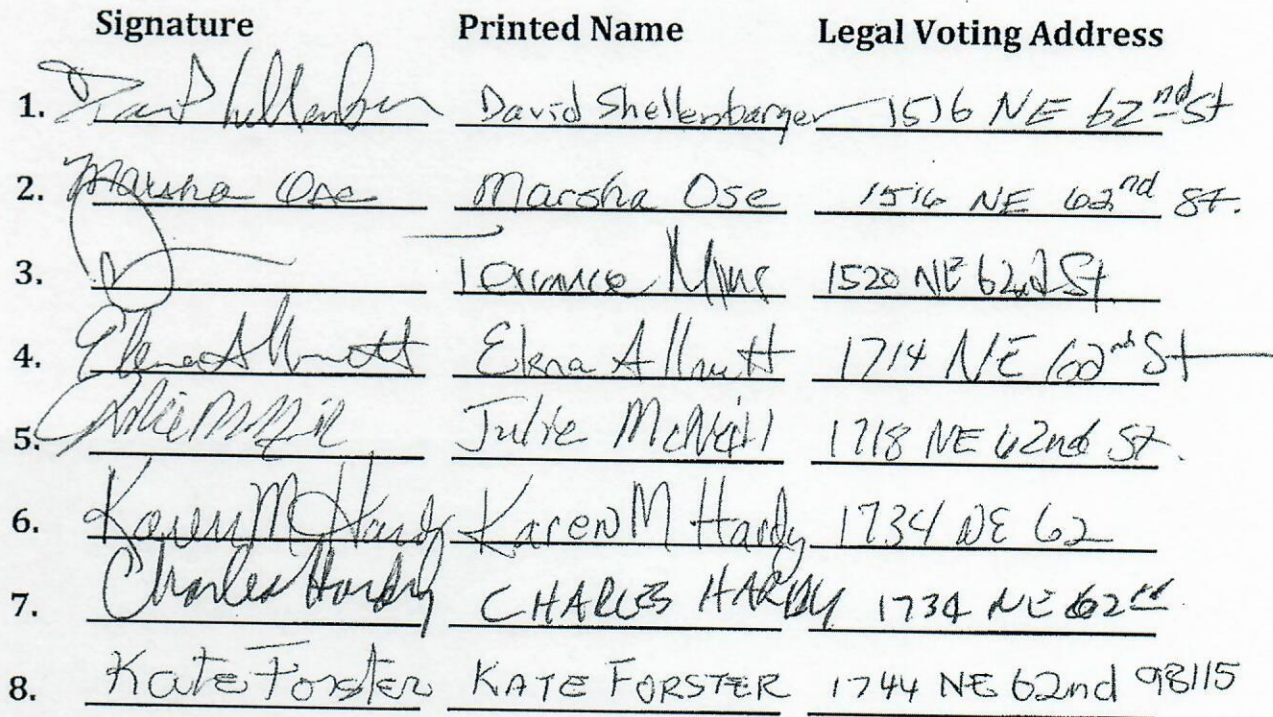 Signature Printed Name Legal Voting Address
1. David Shellenbarger 1516 NE 62nd St
2. Marsha Ose Marsha Ose 1516 NE 62nd St.
3. Terrance 1520 NE 62nd St
4. Elena Allnutt Elena Allnutt 1714 NE 62nd St
5. Julie McNeill 1718 NE 62nd St.
6. Karen M Hardy Karen M Hardy 1734 NE 62
7. Charles Hardy CHARLES HARDY 1734 NE 62nd
8. Kate Forster KATE FORSTER 1744 NE 62nd 98115